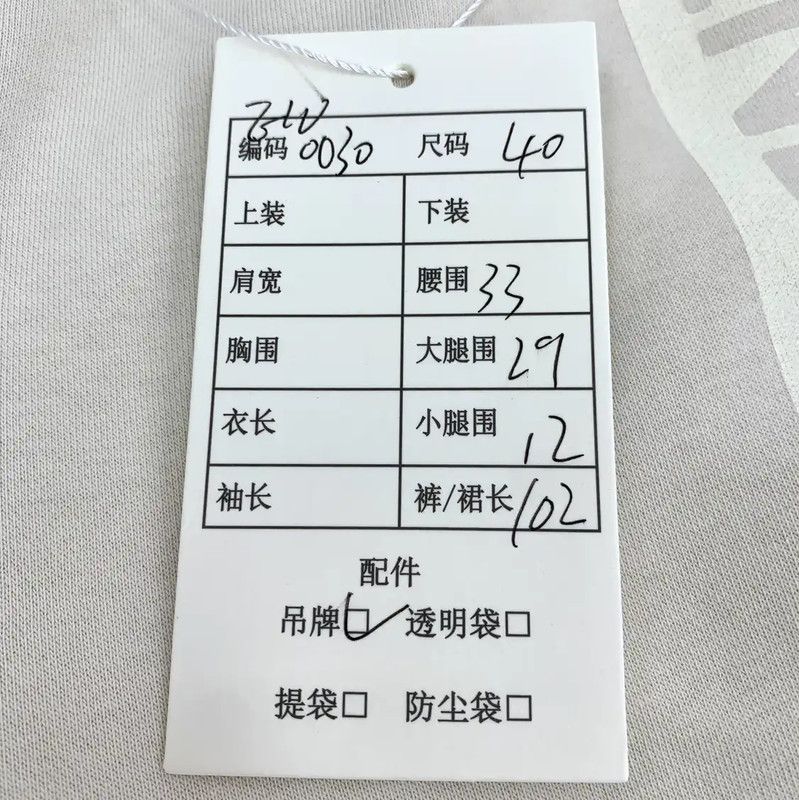 编码 0030 尺码 40
上装 下装
肩宽 腰围 33
胸围 大腿围 29
衣长 小腿围 12
袖长 裤/裙长 102
配件
吊牌☑ 透明袋□
提袋□ 防尘袋□